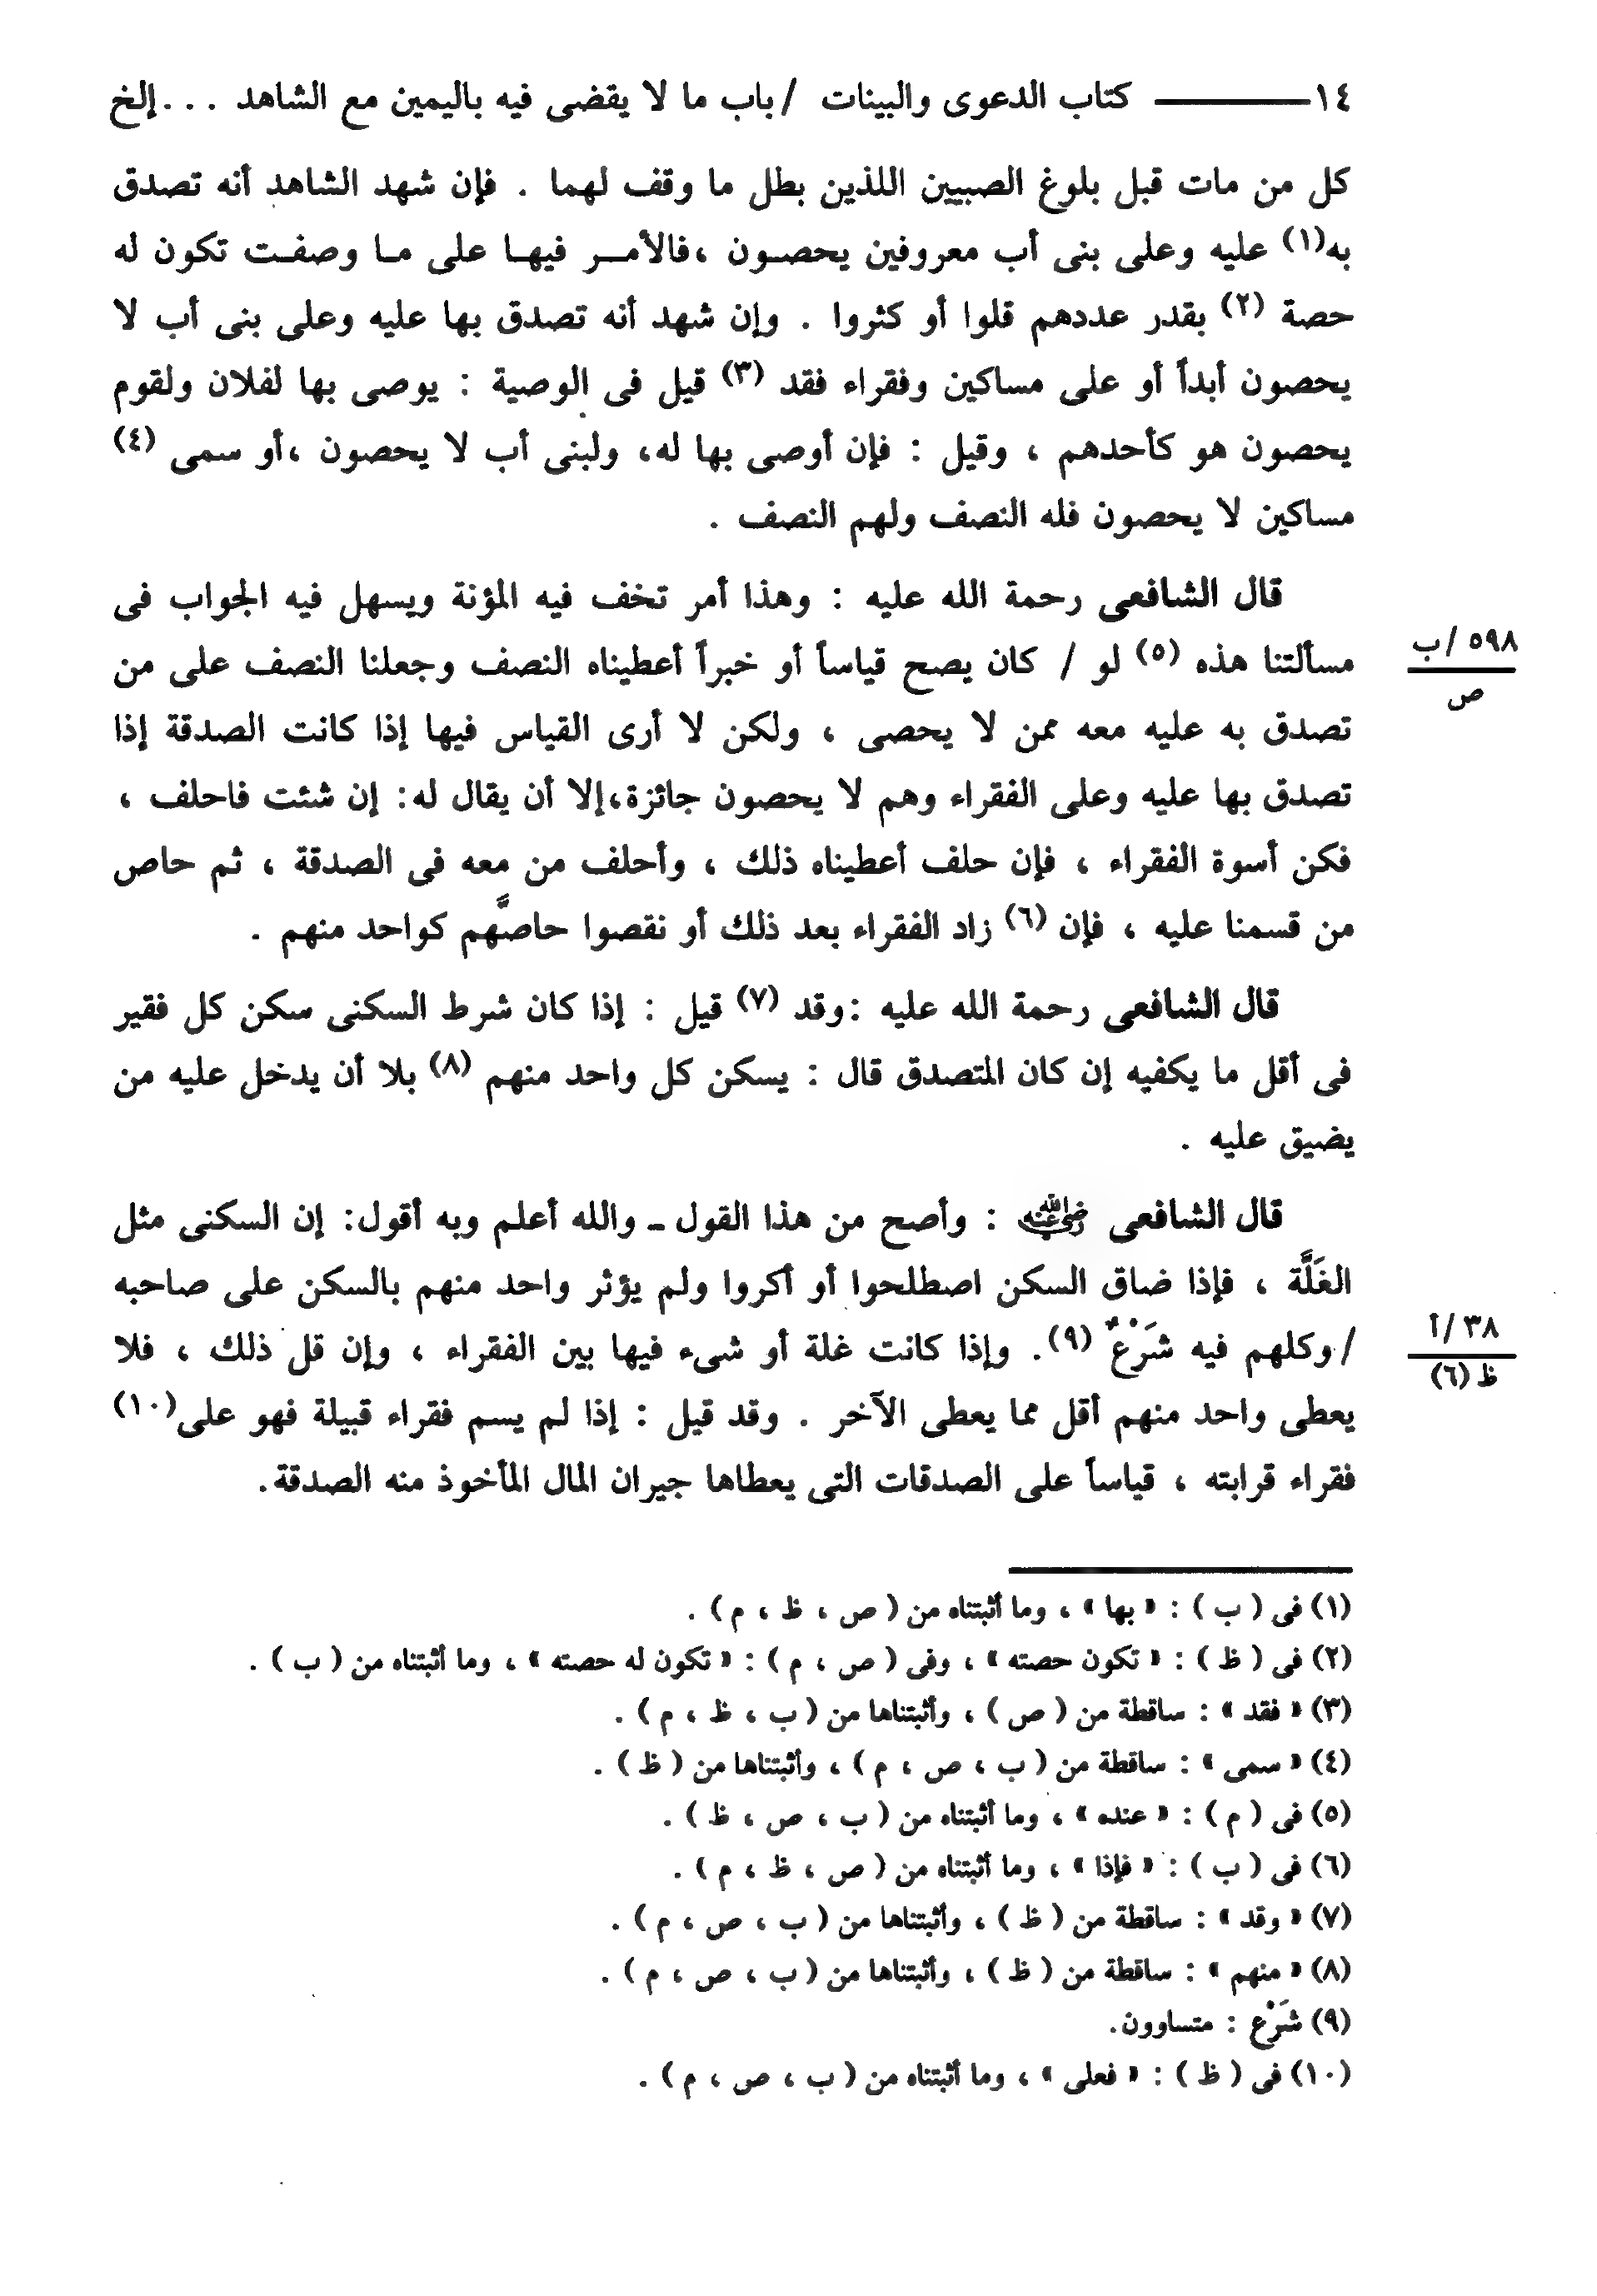 ١٤ ــــــــــــ كتاب الدعوى والبينات / باب ما لا يقضى فيه باليمين مع الشاهد . . . إلخ
كل من مات قبل بلوغ الصبيين اللذين بطل ما وقف لهما . فإن شهد الشاهد أنه تصدق
به(١) عليه وعلى بنى أب معروفين يحصـون ،فالأمـر فيهـا على مـا وصفـت تكون له
حصة (٢) بقدر عددهم قلوا أو كثروا . وإن شهد أنه تصدق بها عليه وعلى بنى أب لا
يحصون أبداً أو على مساكين وفقراء فقد (٣) قيل فى الوصية : يوصى بها لفلان ولقوم
يحصون هو كأحدهم ، وقيل : فإن أوصى بها له، ولبنى أب لا يحصون ،أو سمى (٤)
مساكين لا يحصون فله النصف ولهم النصف .
قال الشافعى رحمة الله عليه : وهذا أمر تخف فيه المؤنة ويسهل فيه الجواب فى
٥٩٨ /ب
ص
مسألتنا هذه (٥) لو / كان يصح قياساً أو خبراً أعطيناه النصف وجعلنا النصف على من
تصدق به عليه معه ممن لا يحصى ، ولكن لا أرى القياس فيها إذا كانت الصدقة إذا
تصدق بها عليه وعلى الفقراء وهم لا يحصون جائزة،إلا أن يقال له: إن شئت فاحلف ،
فكن أسوة الفقراء ، فإن حلف أعطيناه ذلك ، وأحلف من معه فى الصدقة ، ثم حاص
من قسمنا عليه ، فإن (٦) زاد الفقراء بعد ذلك أو نقصوا حاصَّهم كواحد منهم .
قال الشافعى رحمة الله عليه :وقد (٧) قيل : إذا كان شرط السكنى سكن كل فقير
فى أقل ما يكفيه إن كان المتصدق قال : يسكن كل واحد منهم (٨) بلا أن يدخل عليه من
يضيق عليه .
قال الشافعى رضي الله عنه : وأصح من هذا القول ــ والله أعلم وبه أقول: إن السكنى مثل
الغَلَّة ، فإذا ضاق السكن اصطلحوا أو أكروا ولم يؤثر واحد منهم بالسكن على صاحبه
٣٨ /أ
ظ (٦)
/ وكلهم فيه شَرْعٌ (٩). وإذا كانت غلة أو شىء فيها بين الفقراء ، وإن قل ذلك ، فلا
يعطى واحد منهم أقل مما يعطى الآخر . وقد قيل : إذا لم يسم فقراء قبيلة فهو على(١٠)
فقراء قرابته ، قياساً على الصدقات التى يعطاها جيران المال المأخوذ منه الصدقة.
(١) فى ( ب ) : « بها » ، وما أثبتناه من ( ص ، ظ ، م ) .
(٢) فى ( ظ ) : « تكون حصته » ، وفى ( ص ، م ) : « تكون له حصته » ، وما أثبتناه من ( ب ) .
(٣) « فقد » : ساقطة من ( ص ) ، وأثبتناها من ( ب ، ظ ، م ) .
(٤) « سمى » : ساقطة من ( ب ، ص ، م ) ، وأثبتناها من ( ظ ) .
(٥) فى ( م ) : « عنده » ، وما أثبتناه من ( ب ، ص ، ظ ) .
(٦) فى ( ب ) : « فإذا » ، وما أثبتناه من ( ص ، ظ ، م ) .
(٧) « وقد » : ساقطة من ( ظ ) ، وأثبتناها من ( ب ، ص ، م ) .
(٨) « منهم » : ساقطة من ( ظ ) ، وأثبتناها من ( ب ، ص ، م ) .
(٩) شَرْع : متساوون.
(١٠) فى ( ظ ) : « فعلى » ، وما أثبتناه من ( ب ، ص ، م ) .